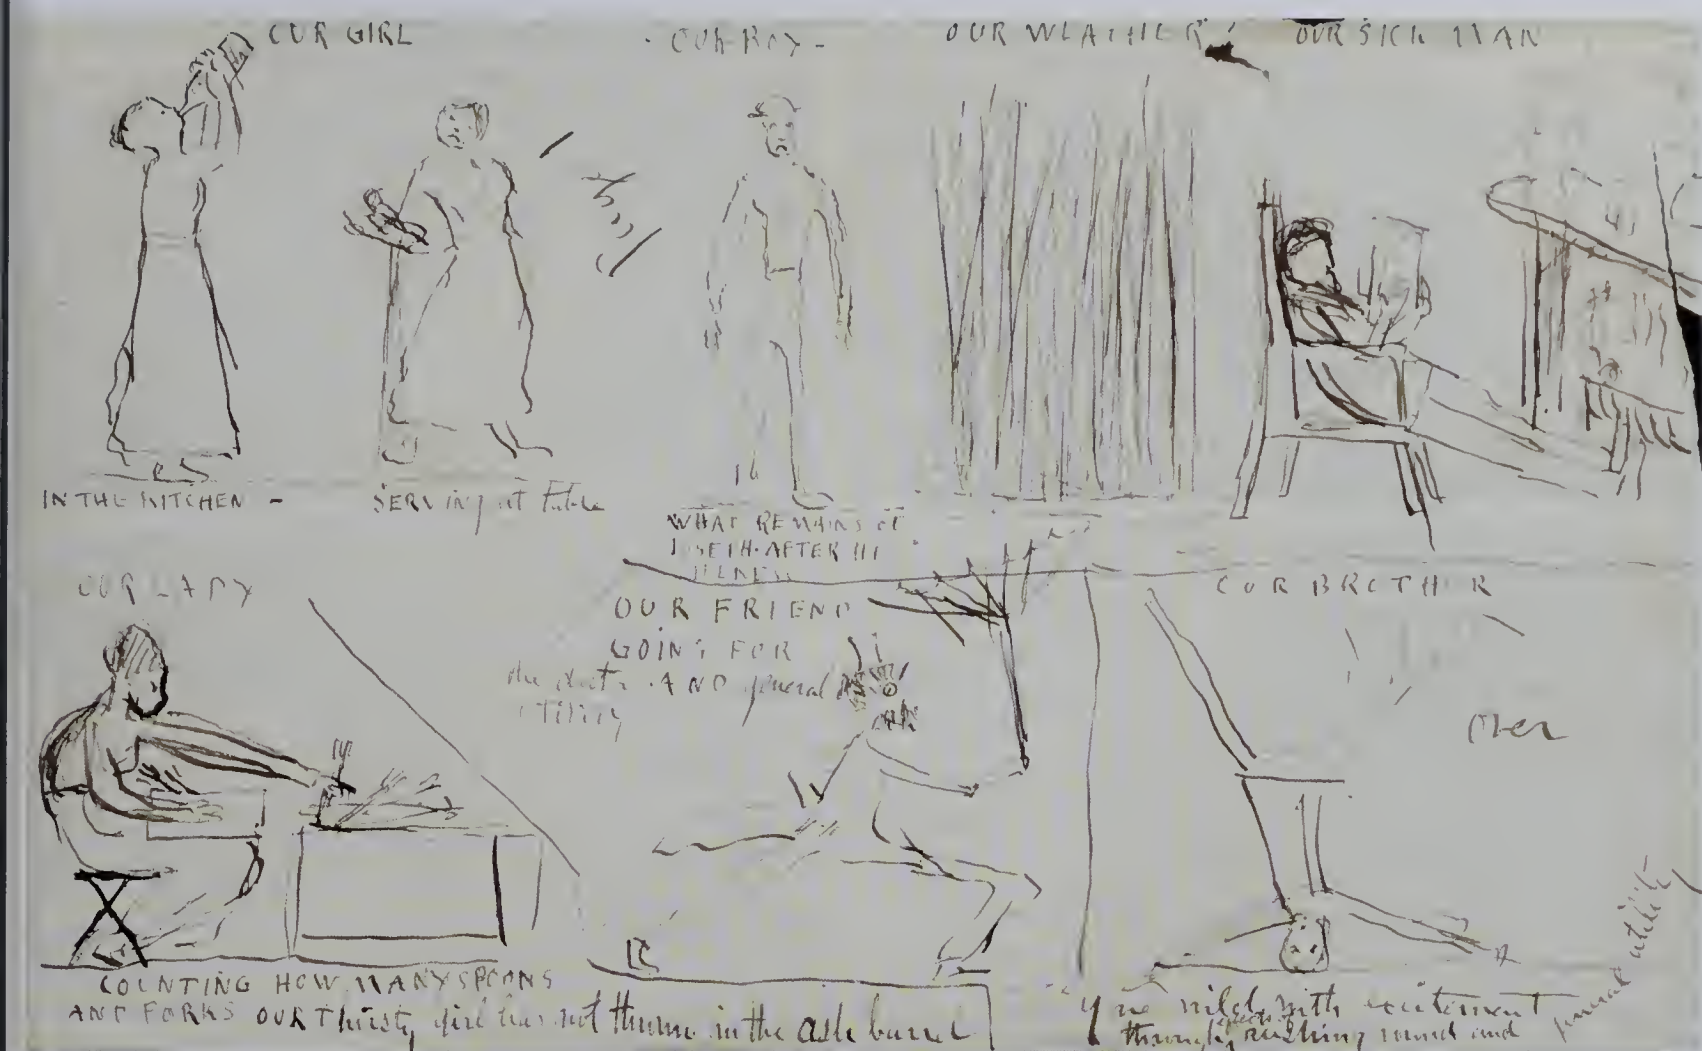 OUR GIRL
- OUR BOY -
OUR WEATHER
OUR SICK MAN
IN THE KITCHEN -
SERVING at Table
WHAT REMAINS of
JOSEPH. AFTER HIS
ILLNESS
OUR LADY
OUR FRIEND
GOING FOR
AND general
utility
OUR BROTHER
over
COUNTING HOW MANY SPOONS
AND FORKS OUR Thirsty girl has not thrown in the ash barrel
wild with excitement
through effects of rushing round and
general utility